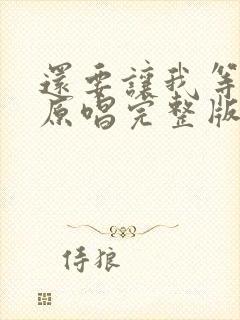 還要讓我等
原唱完整版
侍狼